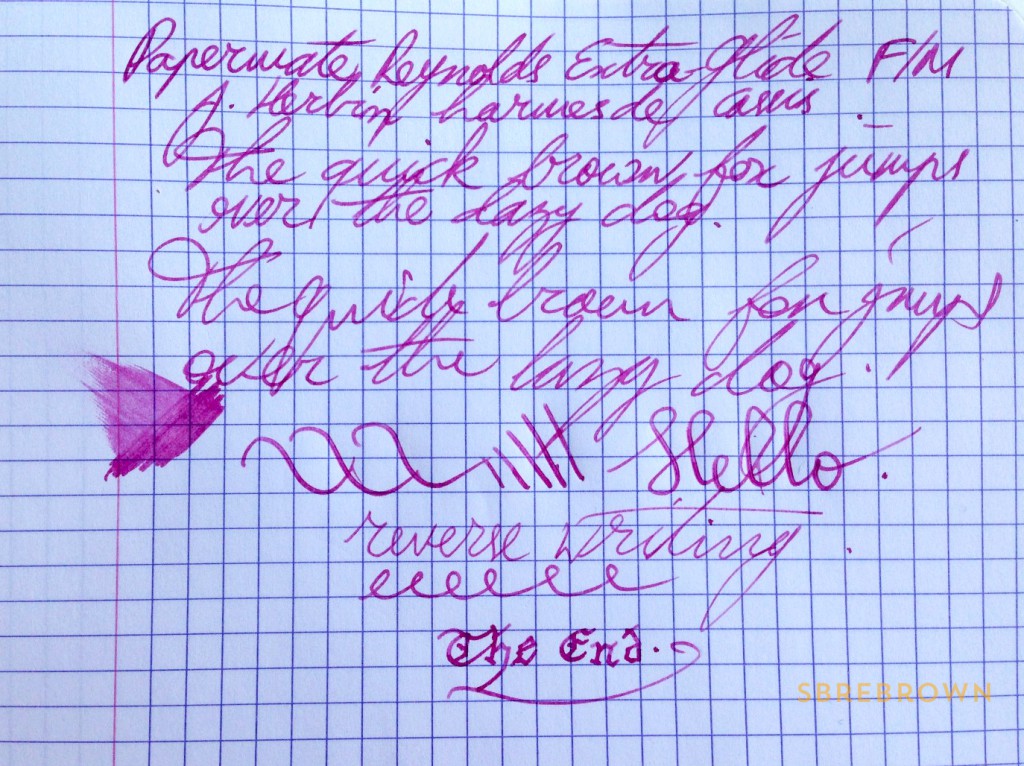 Papermate, Reynolds Extra-Glide F/M
A. Herbin larmes de cassis.
The quick brown fox jumps
over the lazy dog.
The quick brown fox jumps
over the lazy dog.
Hello.
reverse writing.
eeeeee
The End.
SBREBROWN